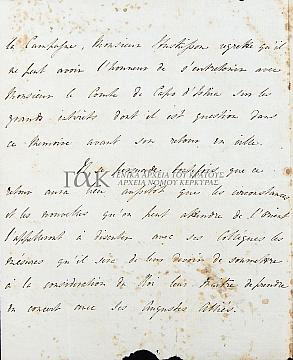 la Campagne, Monsieur Huskisson regrette qu'il
ne peut avoir l'honneur de s'entretenir avec
Monsieur le Comte de Capo d'Istria sur les
grands intérêts dont il est question dans
ce Memoire avant son retour en ville.
Il se persuade toutefois que ce
ΓΕΝΙΚΑ ΑΡΧΕΙΑ ΤΟΥ ΚΡΑΤΟΥΣ
ΑΡΧΕΙΑ ΝΟΜΟΥ ΚΕΡΚΥΡΑΣ
retour aura lieu aussitot que les circonstances
et les nouvelles qu'on peut attendre de l'Orient
l'appelleront à discuter avec ses Collègues les
mésures qu'il sera de leur devoir de soumettre
à la considération du Roi leur Maitre de prendre
en concert avec ses Augustes Alliés.